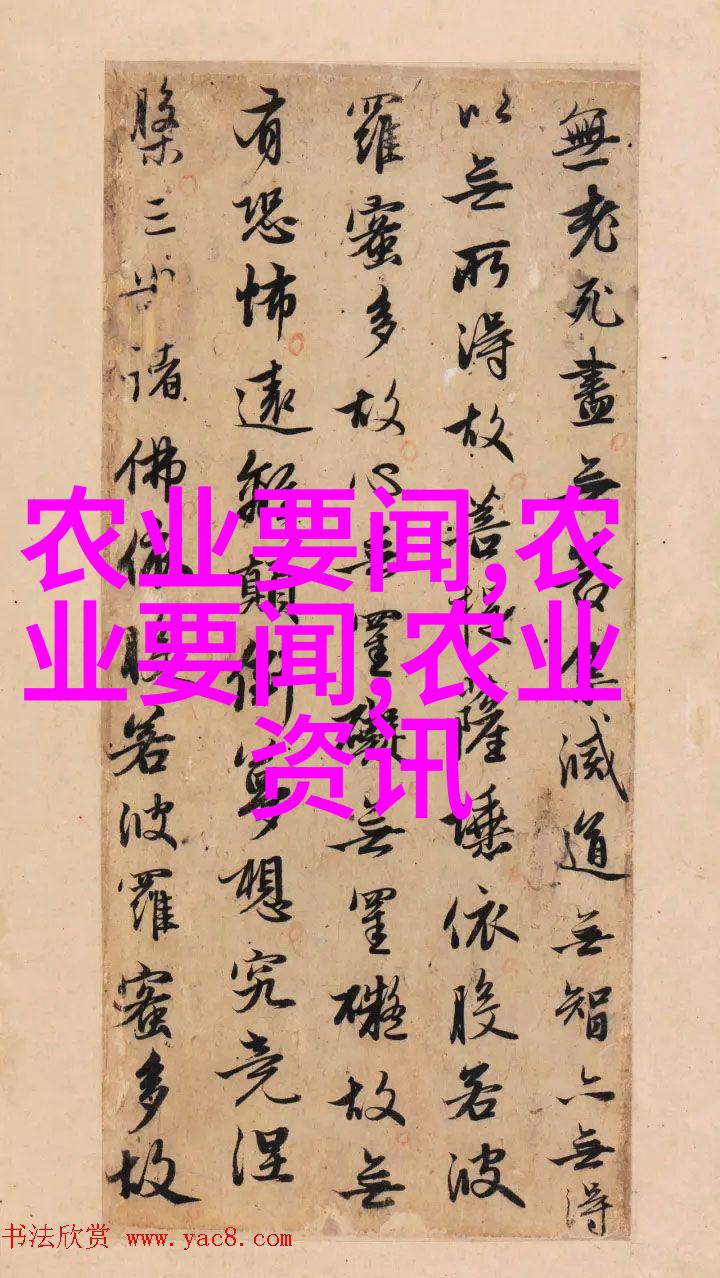 無老死盡無苦集滅道無智亦無得
以無所得故菩提薩埵依般若波
羅蜜多故心無罣礙無罣礙故無
有恐怖遠離顛倒夢想究竟涅
槃三世諸佛依般若波羅蜜多故
农业要闻,农
业要闻,农业
资讯
书法欣赏 www.yac8.com